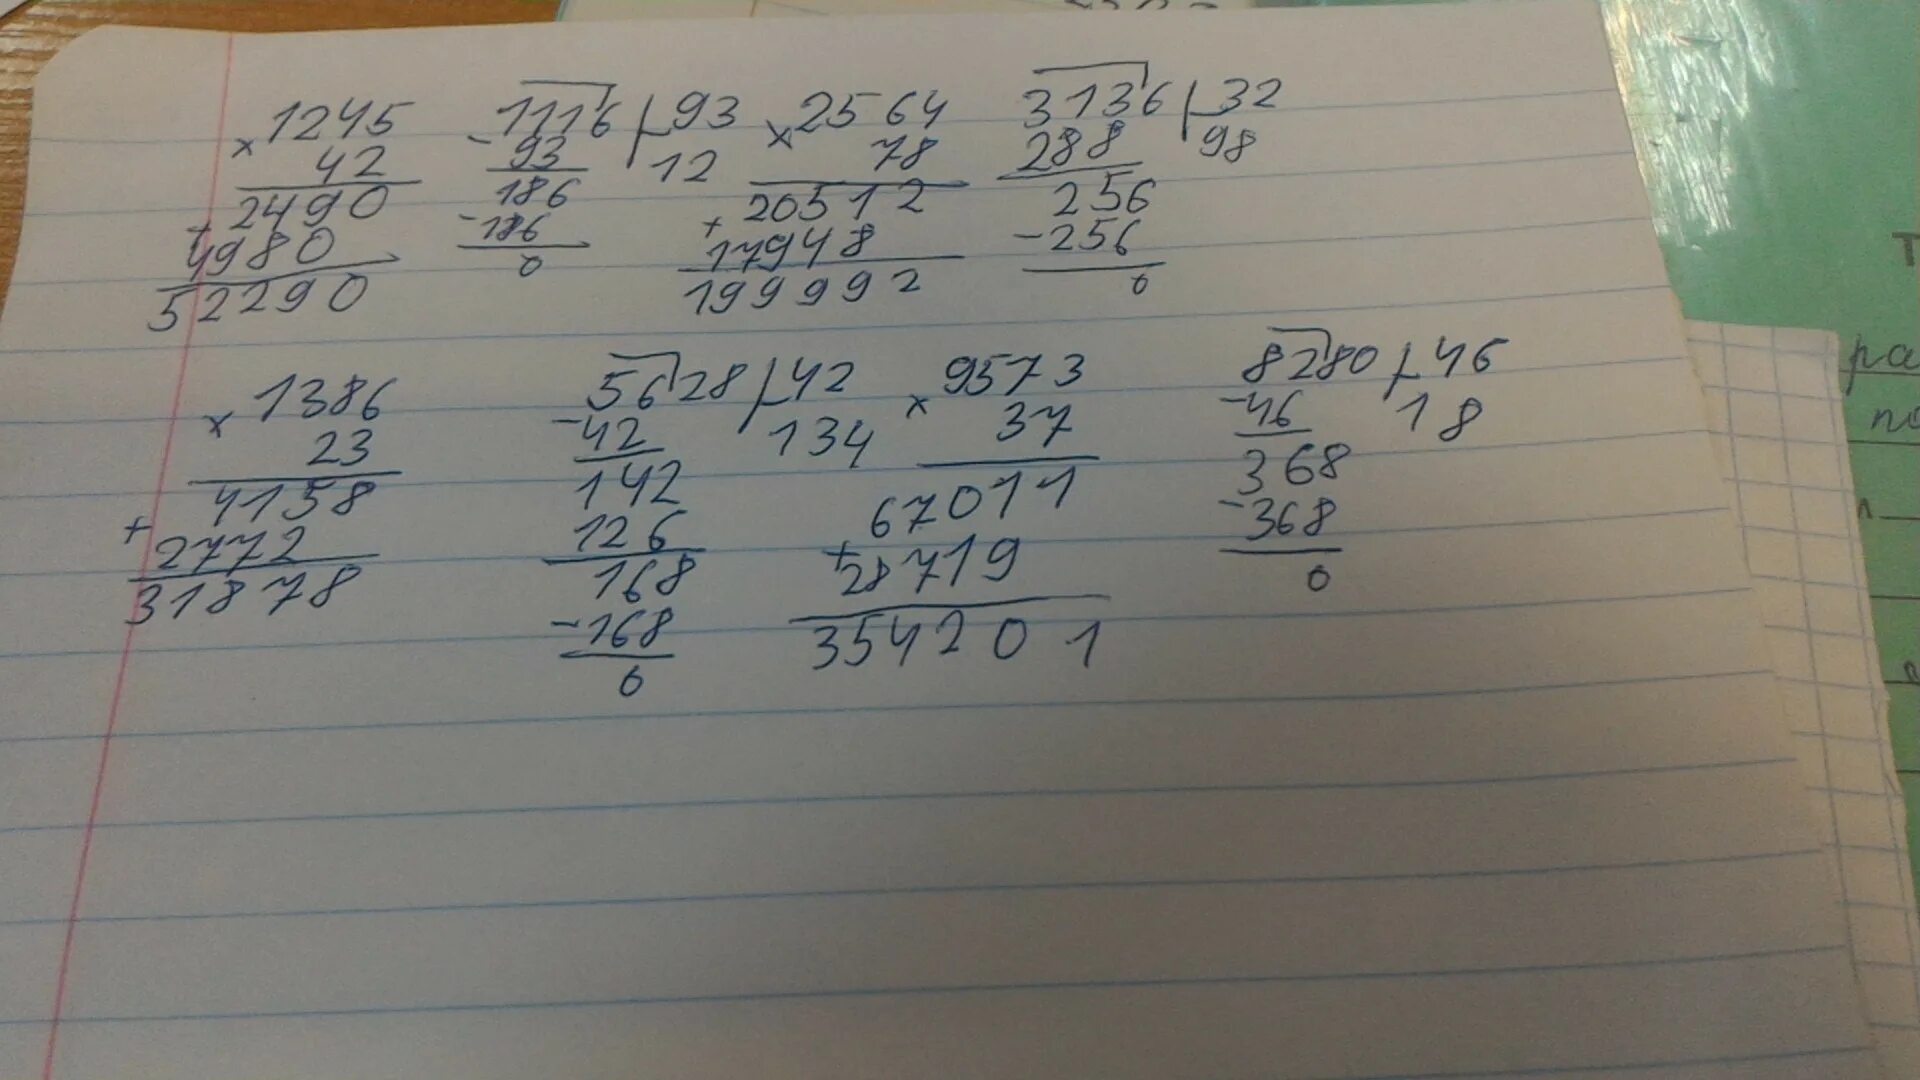 × 1245
42
2490
+
4980
52290
- 1116 | 93
93 12
186
- 186
0
× 2564
78
20512
+
17948
199992
3136 | 32
288 98
256
- 256
0
× 1386
23
4158
+
2772
31878
5628 | 42
- 42 134
142
126
168
- 168
0
× 9573
37
67011
+
28719
354201
8280 | 46
- 46 18
368
- 368
0
Т
ра
по